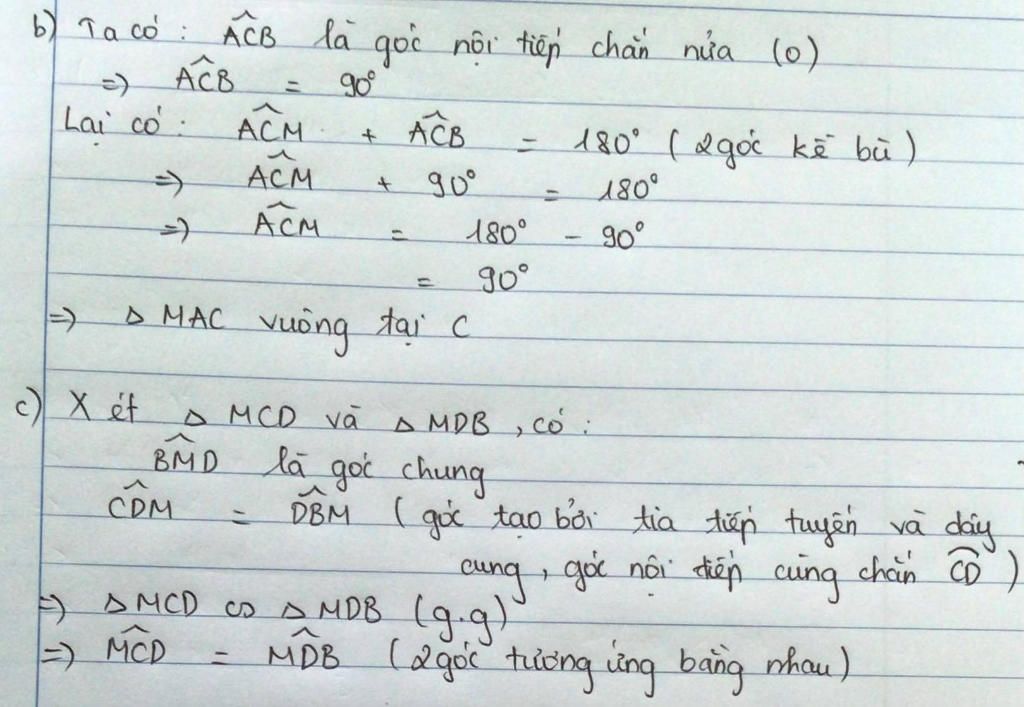 b) Ta có : ACB̂ là góc nội tiếp chắn nửa (O)
=> ACB̂ = 90°
Lại có : ACM̂ + ACB̂ = 180° (2 góc kề bù)
=> ACM̂ + 90° = 180°
=> ACM̂ = 180° - 90°
= 90°
=> Δ MAC vuông tại C
c) Xét Δ MCD và Δ MDB , có :
BMD̂ là góc chung
CDM̂ = DBM̂ (góc tạo bởi tia tiếp tuyến và dây
cung , góc nội tiếp cùng chắn CD̂)
=> Δ MCD ∽ Δ MDB (g.g)
=> MCD̂ = MDB̂ (2 góc tương ứng bằng nhau)